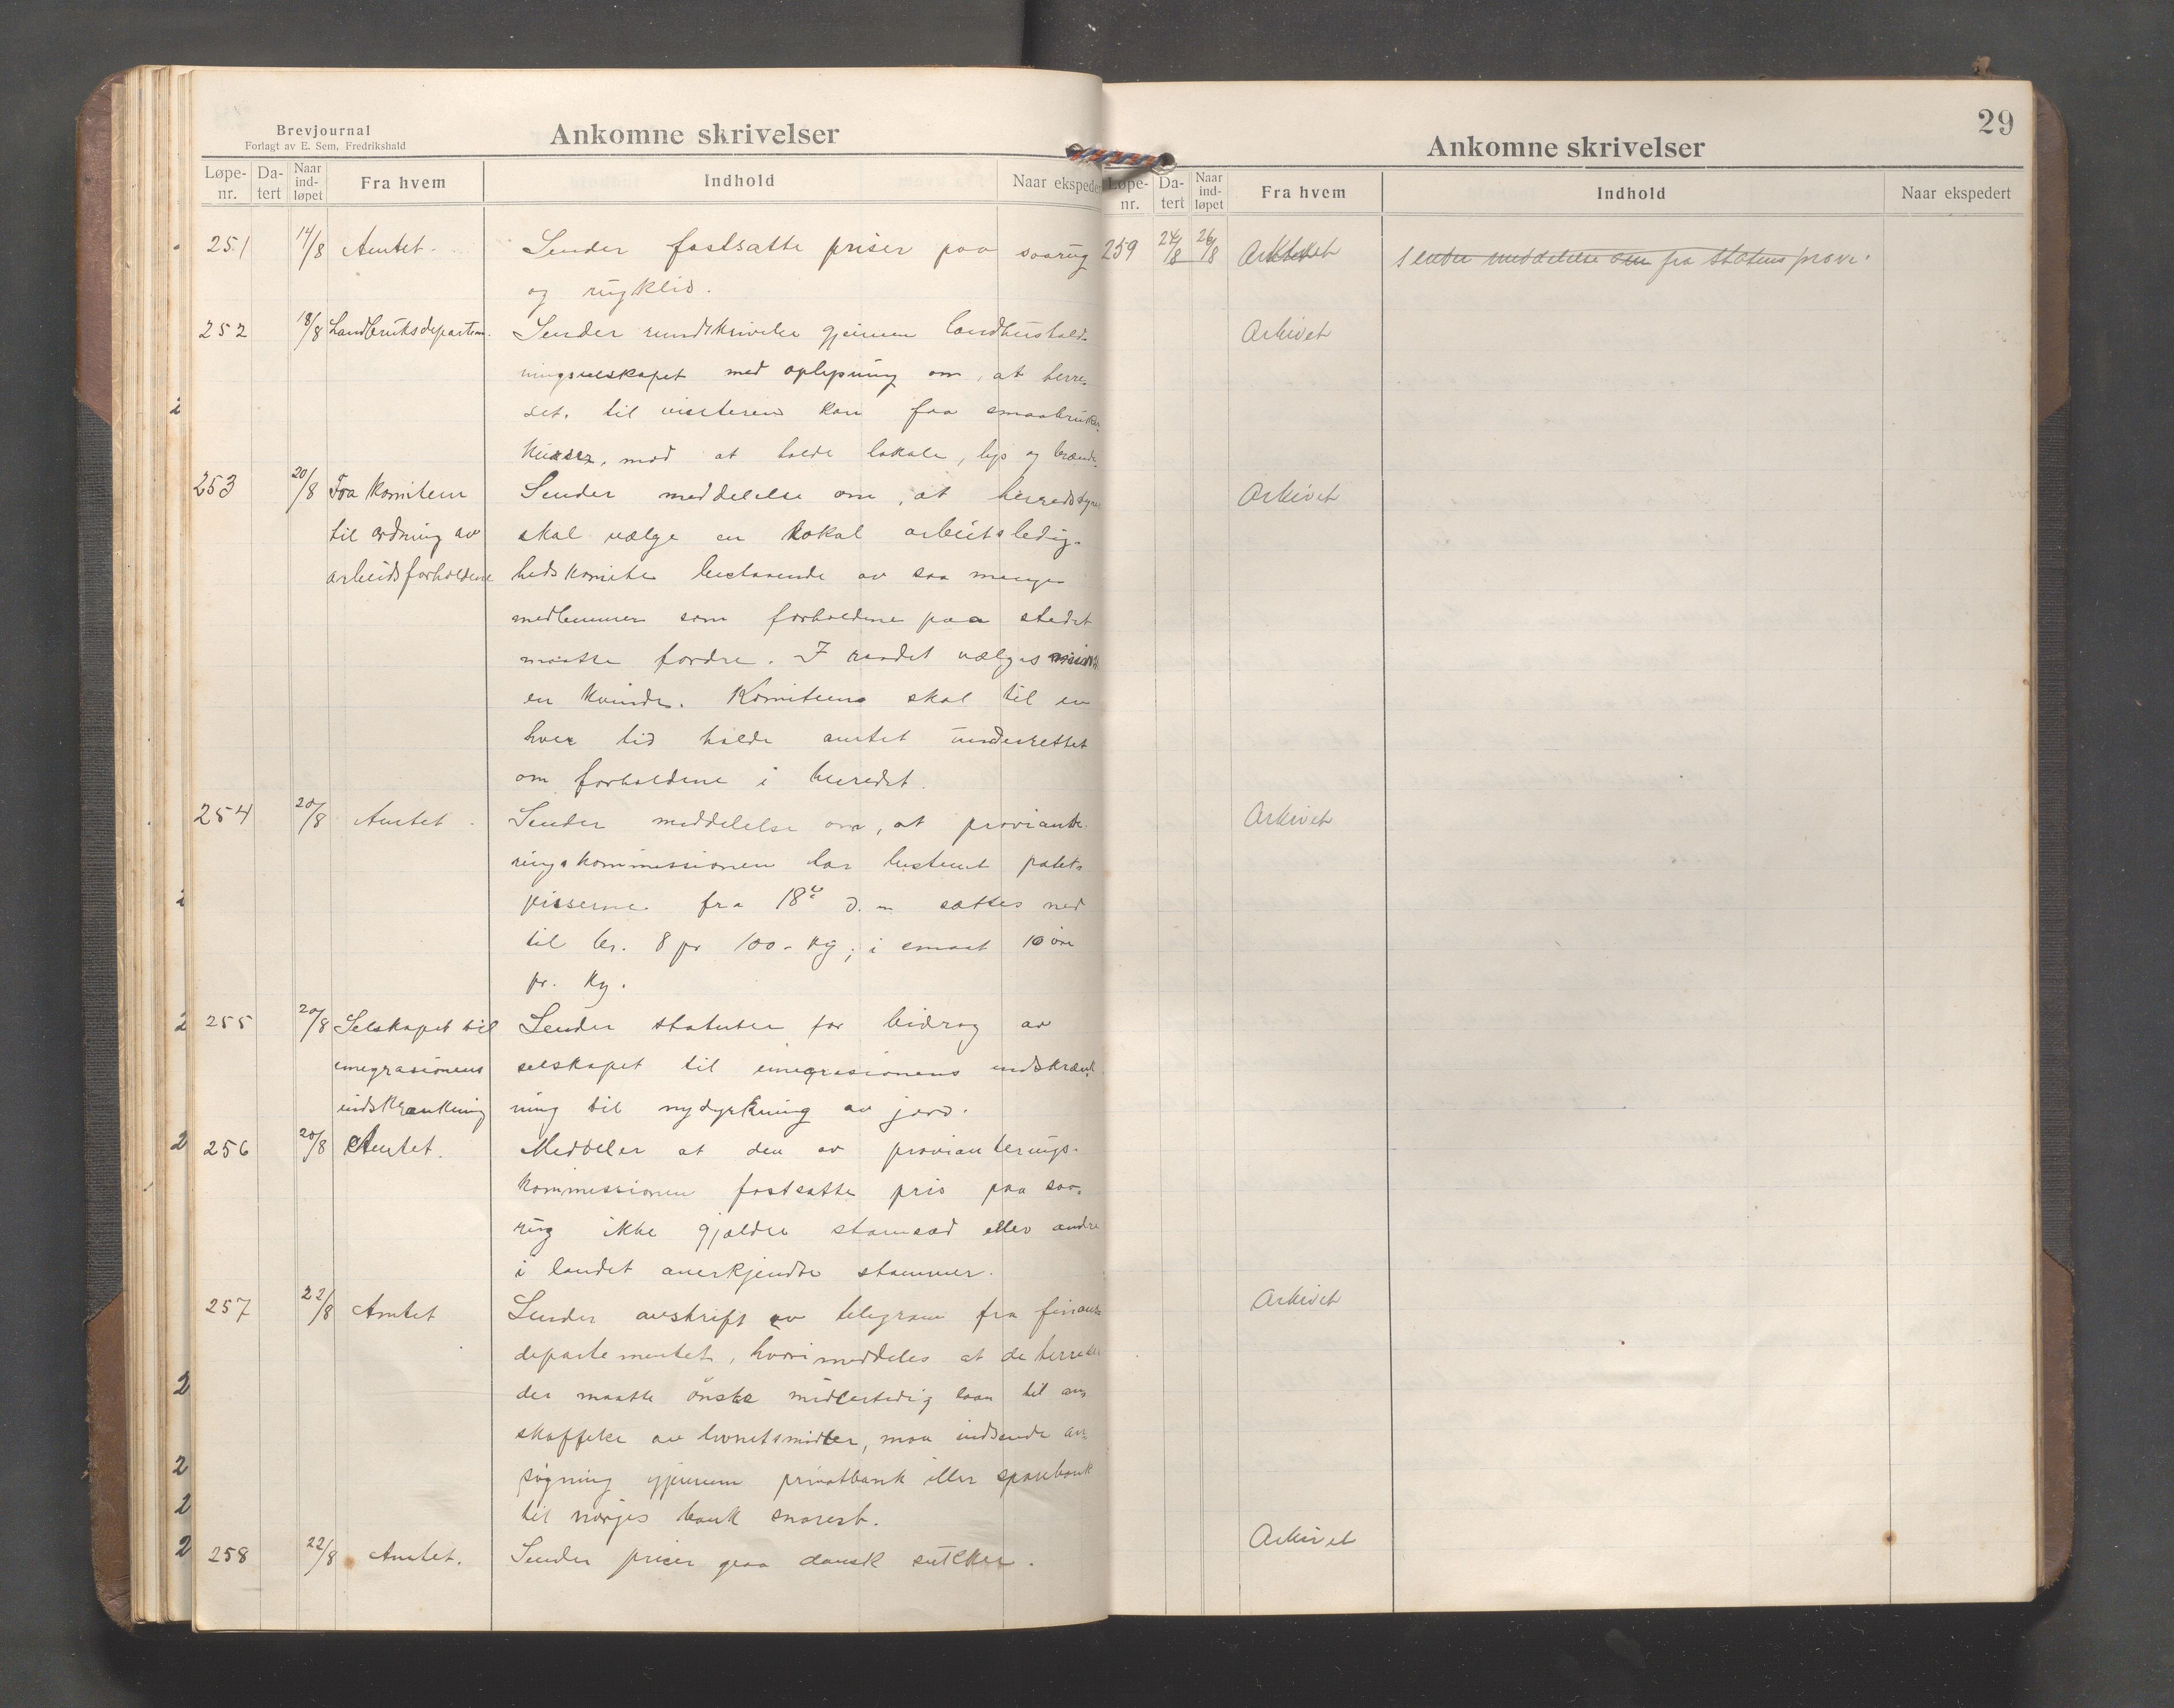 Brevjournal
Forlagt av E. Sem, Fredrikshald
Ankomne skrivelser
Løpe-nr. Da-tert Naar ind-løpet Fra hvem Indhold Naar ekspeder
251 14/8 Amtet. Sender fastsatte priser paa saarug
og rugklid.
252 18/8 Landbruksdepartem. Sender rundskrivelse gjennem landhushold-
ningsselskapet med oplysning om, at herre-
det. til vinteren kan faa smaabruker-
kurser, mod at holde lokale, lys og brænde.
253 20/8 Fra komiteen Sender meddelelse om, at herredsstyre
til ordning av skal vælge en lokal arbeidsledig-
arbeidsforholdene hedskomite bestaaende av saa mange
medlemmer som forholdene paa stedet
maatte fordre. I raadet vælges minst
en kvinde. Komiteens skal til en
hver tid holde amtet underrettet
om forholdene i herredet.
254 20/8 Amtet Sender meddelelse om, at proviante-
ringskommissionen har bestemt potet-
priserne fra 18de d. m sættes ned
til kr. 8 pr 100- kg; i smaat 10 øre
pr. kg.
255 20/8 Selskapet til Sender statuter for bidrag av
emegrasionens selskapet til emegrasionens indskrænk-
indskrænkning ning til nydyrkning av jord.
256 20/8 Amtet. Meddeler at den av provianterings-
kommissionen fastsatte pris paa saa-
rug ikke gjælder stamsæd eller andre
i landet anerkjendte stammer.
257 22/8 Amtet Sender avskrift av telegram fra finans-
departementet, hvori meddeles at de herreder
der maatte ønske midlertidig laan til an-
skaffelse av livnetsmidler, maa indsende an-
søgning gjennem privatbank eller sparebank
til norges bank snarest.
258 22/8 Amtet. Sender priser paa dansk sukker.
29
Ankomne skrivelser
Løpe-nr. Da-tert Naar ind-løpet Fra hvem Indhold Naar ekspedert
259 24/8 26/8 Arkivet Sender meddelelse om fra statens prov.
Arkivet
Arkivet
Arkivet
Arkivet
Arkivet